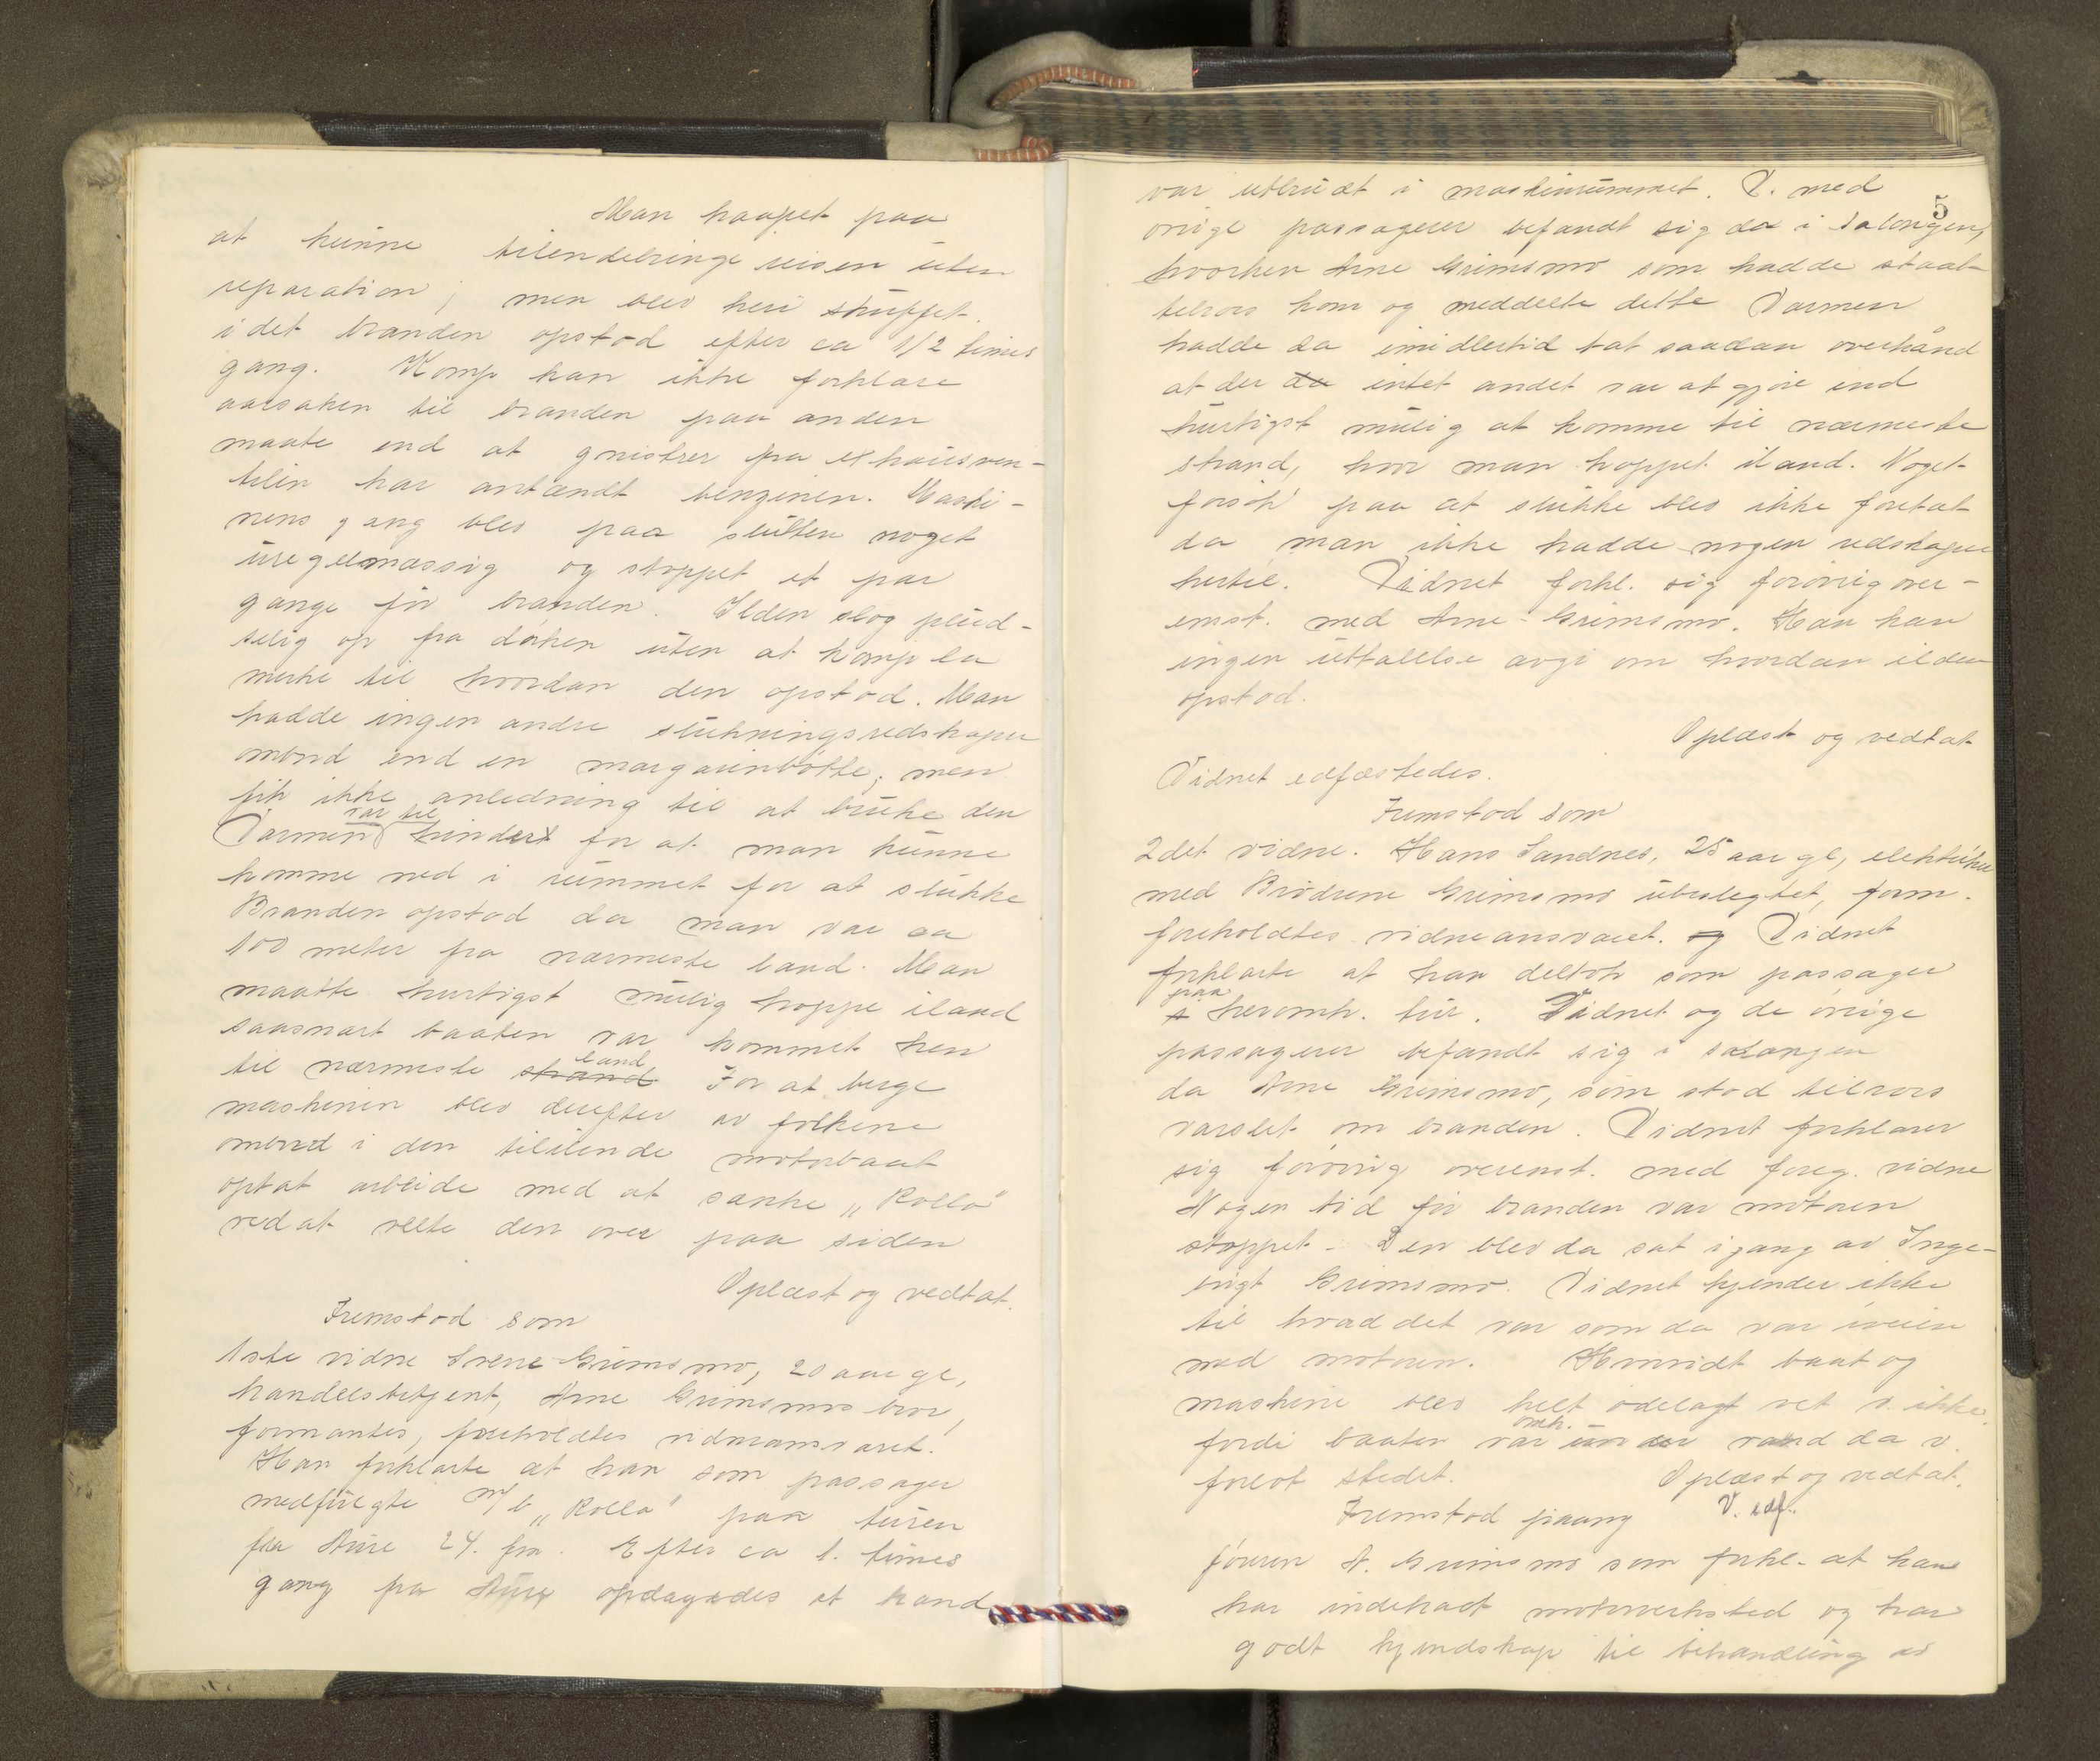 Man haapet paa
at kunne tilendebringe reisen uten
reparation; men blev heri skuffet.
idet branden opstod efter ca 1/2 times
gang. Komp kan ikke forklare
aarsaken til branden paa anden
maate end at gnistrer fra exhausven-
tilen har antændt benzinen. Maski-
nens gang blev paa slutten noget
uregelmæssig og stoppet et par
gange før branden. Ilden slog plud-
selig op fra dørken uten at komp la
merke til hvordan den opstod. Man
hadde ingen andre slukningsredskaper
ombord end en margarinbøtte; men
fik ikke anledning til at bruke den
Varmen var til hindert for at man kunne
komme ned i rummet for at slukke
Branden opstod da man var ca
100 meter fra nærmeste land. Man
maatte hurtigst mulig hoppe iland
saasnart baaten var kommet hen
til nærmeste strand land For at berge
maskinen blev derefter av folkene
ombord i den tililende motorbaat
optat arbeide med at sænke "Rollo"
ved at velte den over paa siden
Oplæst og vedtat.
Fremstod som
1ste vidne Sverre Grimsmo, 20 aar gl,
handelsbetjent, Arne Grimsmos bror,
formantes, foreholdtes vidneansvaret.
Han forklarte at han som passager
medfulgte m/b "Rollo" paa turen
fra Aure 24. fm. Efter ca 1. times
gang fra Aure opdagedes at brand
5
var utbrudt i maskinrummet. V. med
øvrige passagerer befandt sig da i salongen,
hvorhen Arne Grimsmo som hadde staat
tilrors kom og meddelte dette Varmen
hadde da imidlertid tat saadan overhånd
at der da intet andet var at gjøre end
hurtigst mulig at komme til nærmeste
strand, hvor man hoppet iland. Noget
forsøk paa at slukke blev ikke foretat
da man ikke hadde nogen redskaper
hertil. Vidnet forkl. sig forøvrig over-
enst. med Arne Grimsmo. Han kan
ingen uttalelse avgi om hvordan ilden
opstod.
Oplæst og vedtat
Vidnet edfæstedes.
Fremstod som
2det vidne. Hans Sandnes, 25 aar gl, elektriker
med Brødrene Grimsmo ubeslegtet, form.
foreholdtes vidneansvaret. og Vidnet
forklarte at han deltok som passager
i paa heromh. tur. Vidnet og de øvrige
passagerer befandt sig i salongen
da Arne Grimsmo, som stod tilrors
varslet om branden. Vidnet forklarer
sig forøvrig overenst. med foreg. vidne
Nogen tid før branden var motoren
stoppet - Den blev da sat igang av Inge-
brigt Grimsmo. Vidnet kjender ikke
til hvad det var som da var iveien
med motoren. Hvorvidt baat og
maskine blev helt ødelagt vet v. ikke,
fordi baaten var omh. under vand da v.
forlot stedet. Oplæst og vedtat.
V. edf.
Fremstod paany
føreren A. Grimsmo som forkl. at han
har indehadt motorverksted og har
godt kjendskap til behandling av